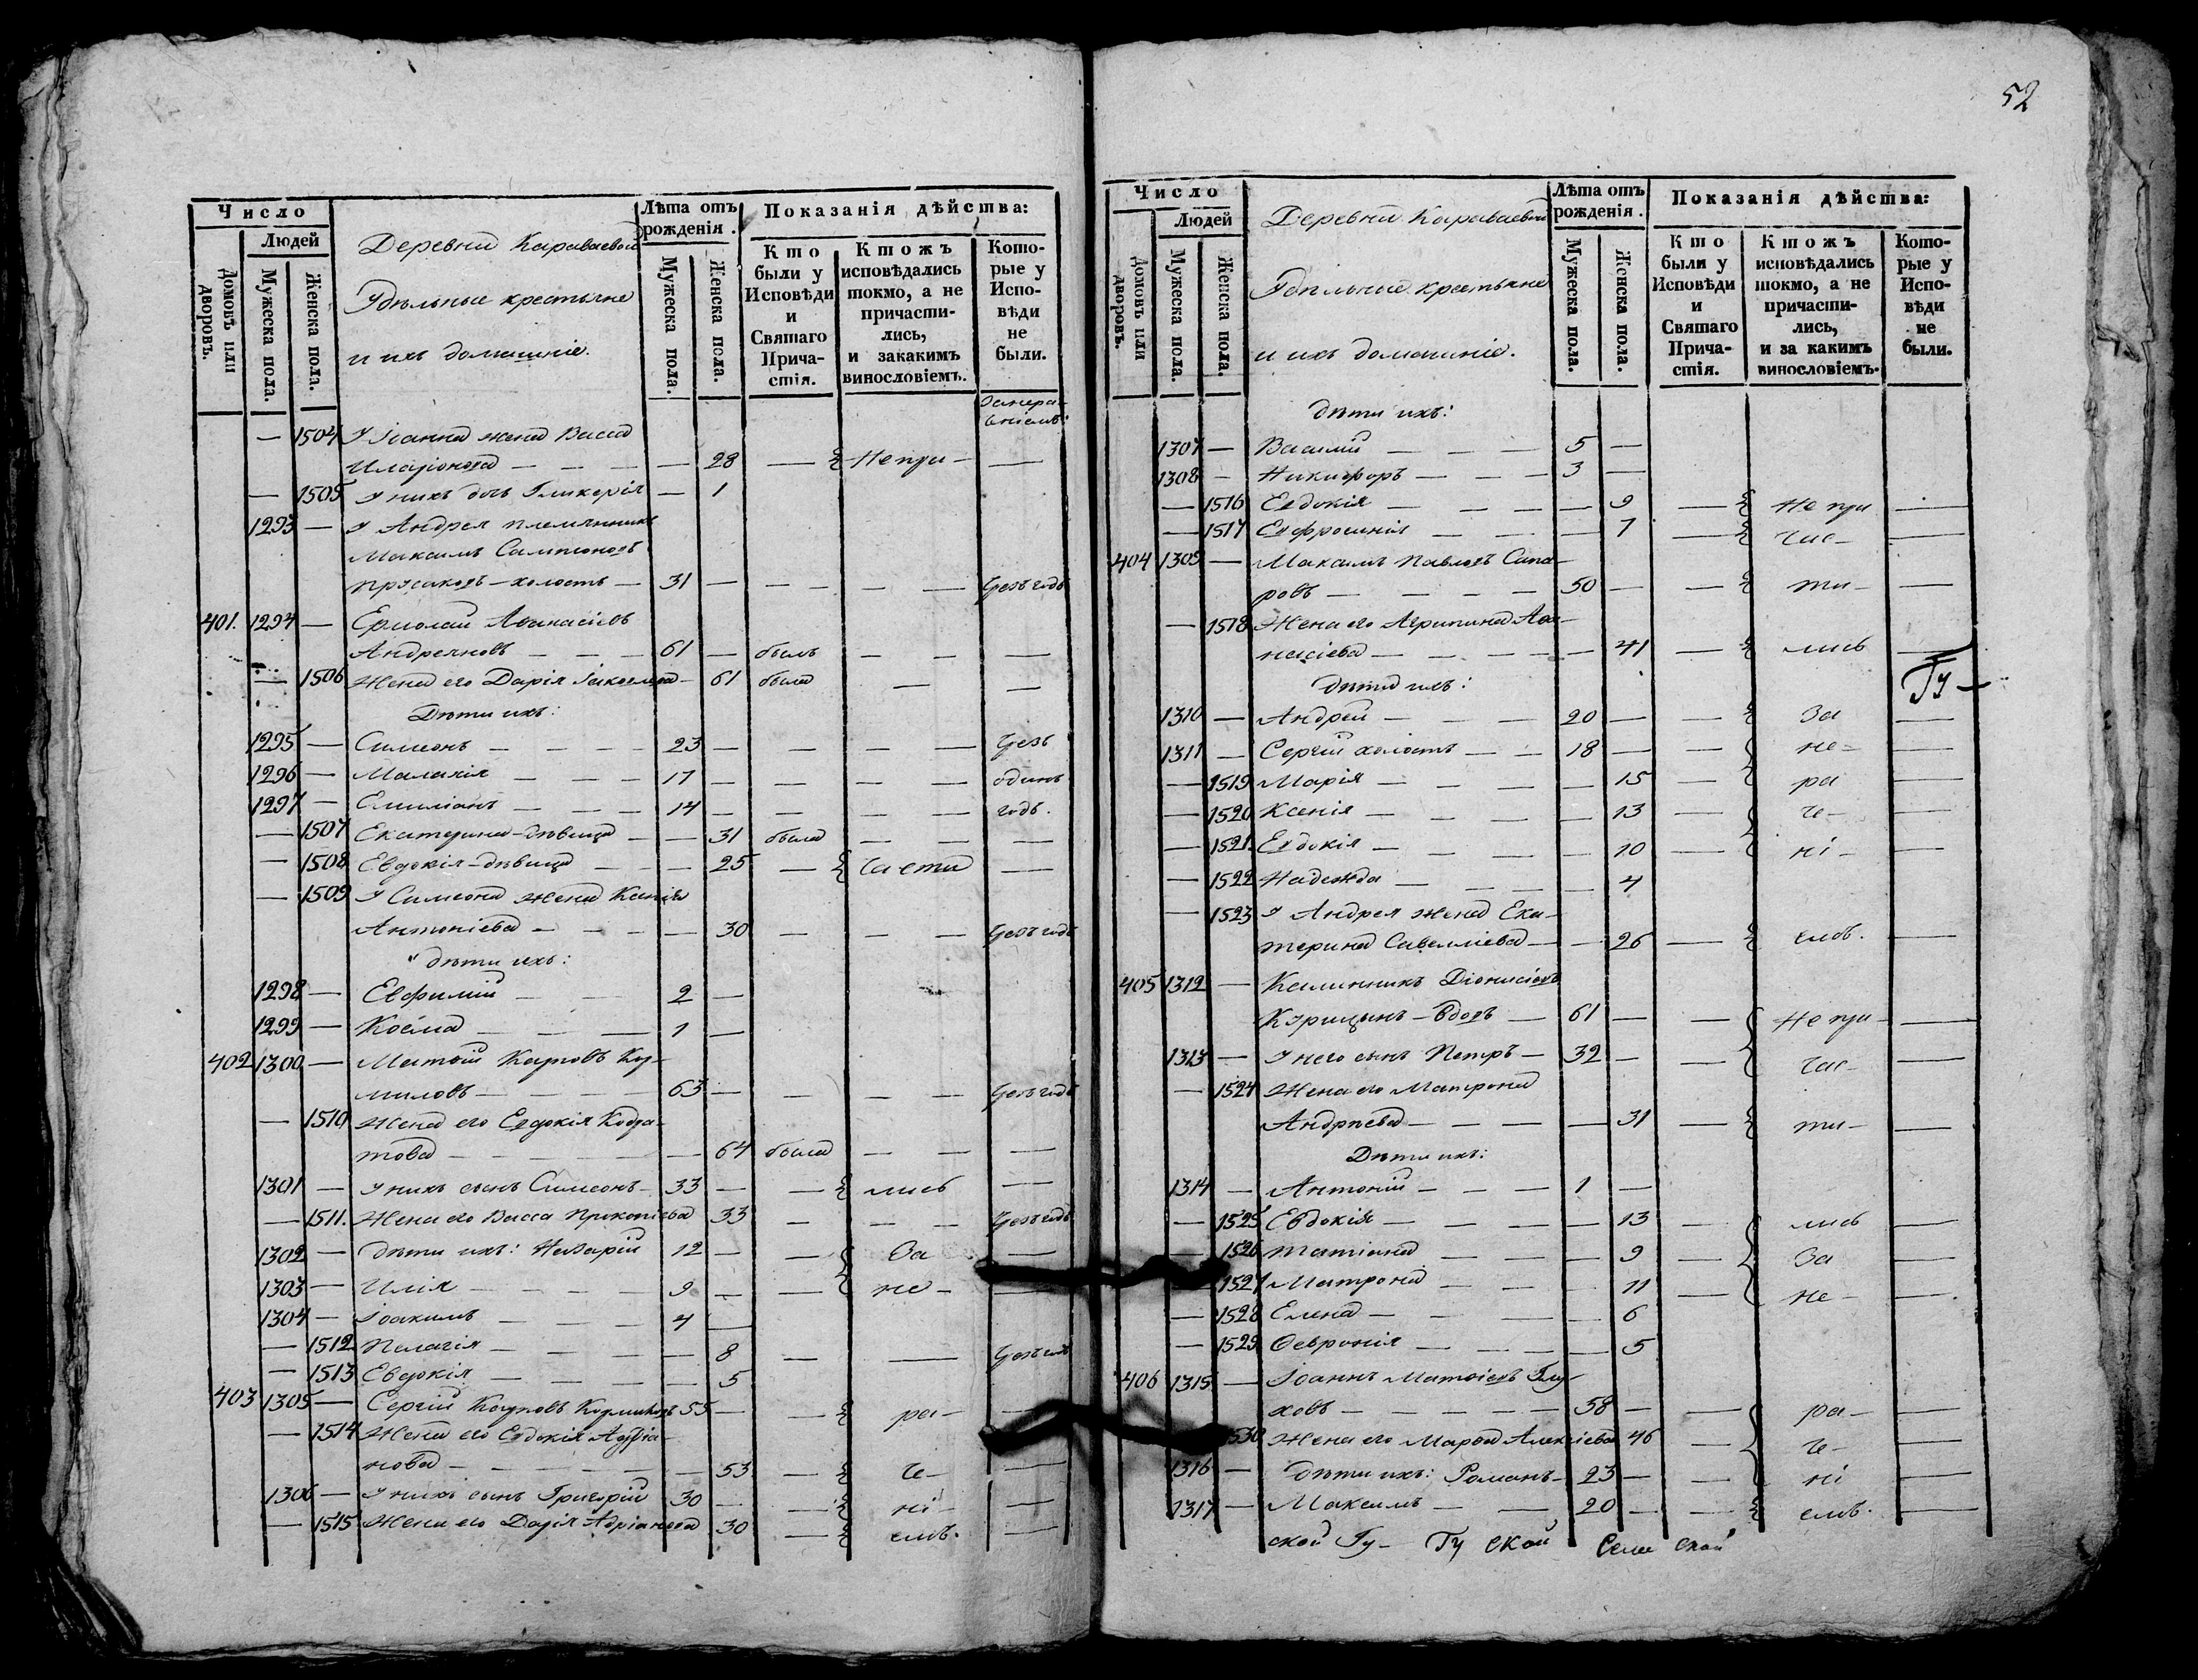 52
Число
Людей
Домовъ или дворовъ.
Мужеска пола.
Женска пола.
Деревни Караваевой
Удѣльные крестьяне
и ихъ домашніе.
Лѣта отъ рожденія.
Мужеска пола.
Женска пола.
Показанія дѣйства:
Кто были у Исповѣди и Святаго Прича-стія.
Ктожъ исповѣдались токмо, а не причасти-лись, и закакимъ винословіемъ.
Кото-рые у Испо-вѣди не были.
— 1504 У Іоанна жена Васса
Иларіонова — — — — 28 — Непри — —
— 1505 У нихъ дочь Гликерія — 1
1293 — У Андрея племянникъ
Максимъ Сампсоновъ
Прусаковъ — холостъ — 31 — — — — Чрезъ годъ
401. 1294 — Ермолай Афанасіевъ
Андреяновъ — — — 61 — былъ — — —
— 1506 Жена его Дарія Іаковлева — 61 была — —
Дѣти ихъ:
1295 — Симеонъ — — — — 23 — — — — Чрезъ
1296 — Малахія — — — 17 — — — — одинъ
1297 — Емиліанъ — — — 14 — — — — годъ.
— 1507 Екатерина — дѣвица — — 31 была — — —
— 1508 Евдокія — дѣвица — — 25 — части —
— 1509 У Симеона жена Ксенія
Антоніева — — — — 30 — — — Чрезъ годъ
дѣти ихъ:
1298 — Евфимій — — 2 —
1299 — Косма — — — 1 —
402 1300 — Матѳій Карповъ Кор-
миловъ — — — — 63 — — — — Чрезъ годъ
— 1510 Жена его Евдокія Кодра-
това — — — — — — 64 была — — —
1301 — У нихъ сынъ Симеонъ — 33 — — лись —
— 1511. Жена его Васса Прокопіева 33 — — — Чрезъ годъ
1302 — дѣти ихъ: Назарій 12 — — За —
1303 — Илія — — — — 9 — — не — —
1304 — Іоакимъ — — — 4 —
— 1512 Пелагія — — — — 8 — — Чрезъ годъ
— 1513 Евдокія — — — — 5
403 1305 — Сергій Карповъ Кормиловъ 55 — — ра — —
— 1514 Жена его Евдокія Адріа-
нова — — — — — — 53 — че — —
1306 — У нихъ сынъ Григорій 30 — — ні — —
— 1515 Жена его Дарія Адріанова 30 — емъ. —
Число
Людей
Домовъ или дворовъ.
Мужеска пола.
Женска пола.
Деревни Караваевой
Удѣльные крестьяне
и ихъ домашніе.
Лѣта отъ рожденія.
Мужеска пола.
Женска пола.
Показанія дѣйства:
Кто были у Исповѣди и Святаго Прича-стія.
Ктожъ исповѣдались токмо, а не причасти-лись, и за какимъ винословіемъ.
Кото-рые у Испо-вѣди не были.
дѣти ихъ:
1307 — Василій — — — 5 —
1308 — Никифоръ — — — 3 —
— 1516 Евдокія — — — — — 9 — Не при —
— 1517 Евфросинія — — — 7 — час — —
404 1309 — Максимъ Павловъ Сапа-
ровъ — — — — 50 — — ти — —
— 1518 Жена его Агрипина Афа-
насіева — — — — — 41 — лись —
дѣти ихъ:
Гу —
1310 — Андрей — — — 20 — — За —
1311 — Сергій холостъ — — 18 — — не — —
— 1519 Марія — — — — — 15 — ра —
— 1520 Ксенія — — — — — 13 — че — —
— 1521. Евдокія — — — — — 10 — ні — —
— 1522 Надежда — — — — — 4
— 1523 У Андрея жена Ека-
терина Савелліева — — 26 — емъ. —
405 1312 — Калинникъ Діонисіевъ
Курицынъ — вдовъ — 61 — — Не при — —
1313 — У него сынъ Петръ — 32 — — час — —
— 1524 Жена его Матрона
Андрѣева — — — — 31 — ти — —
Дѣти ихъ:
1314 — Антоній — — — 1 —
— 1525 Евдокія — — — — 13 — лись —
— 1526 Татіана — — — 9 За —
1527 Матрона — — — 11 — не — —
— 1528 Елена — — — — 6
— 1529 Ѳевронія — — — — 5
406 1315 — Іоаннъ Матѳіевъ Глу-
ховъ — — — — — 58 — — ра — —
1530 Жена его Марѳа Алексіева 46 — че — —
1316 — дѣти ихъ: Романъ — 23 — — ні —
1317 — Максимъ — — 20 — — емъ. —
ской Гу — Гу ской Семи ской